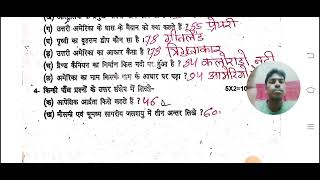 (ग) उत्तरी अमेरिका के घास के मैदान को क्या कहते हैं ? 65 प्रेयरी
(घ) पृथ्वी का वृहत्तम द्वीप कौन सा है ? 78 ग्रीनलैंड
(ङ) उत्तरी अमेरिका का आकार कैसा है ? 79 त्रिभुजाकार
(च) ग्रैण्ड कैनियन का निर्माण किस नदी पर हुआ है ? 84 कोलोराडो नदी
(छ) अमेरिका का नाम किसके नाम के आधार पर पड़ा ? 94 अमेरिगो
4- किन्हीं पाँच प्रश्नों के उत्तर संक्षेप में लिखो- 5X2=10
(क) आपेक्षिक आर्द्रता किसे कहते हैं ? 46
(ख) मौसमी एवं भूमध्य सागरीय जलवायु में तीन अन्तर लिखो ? 60